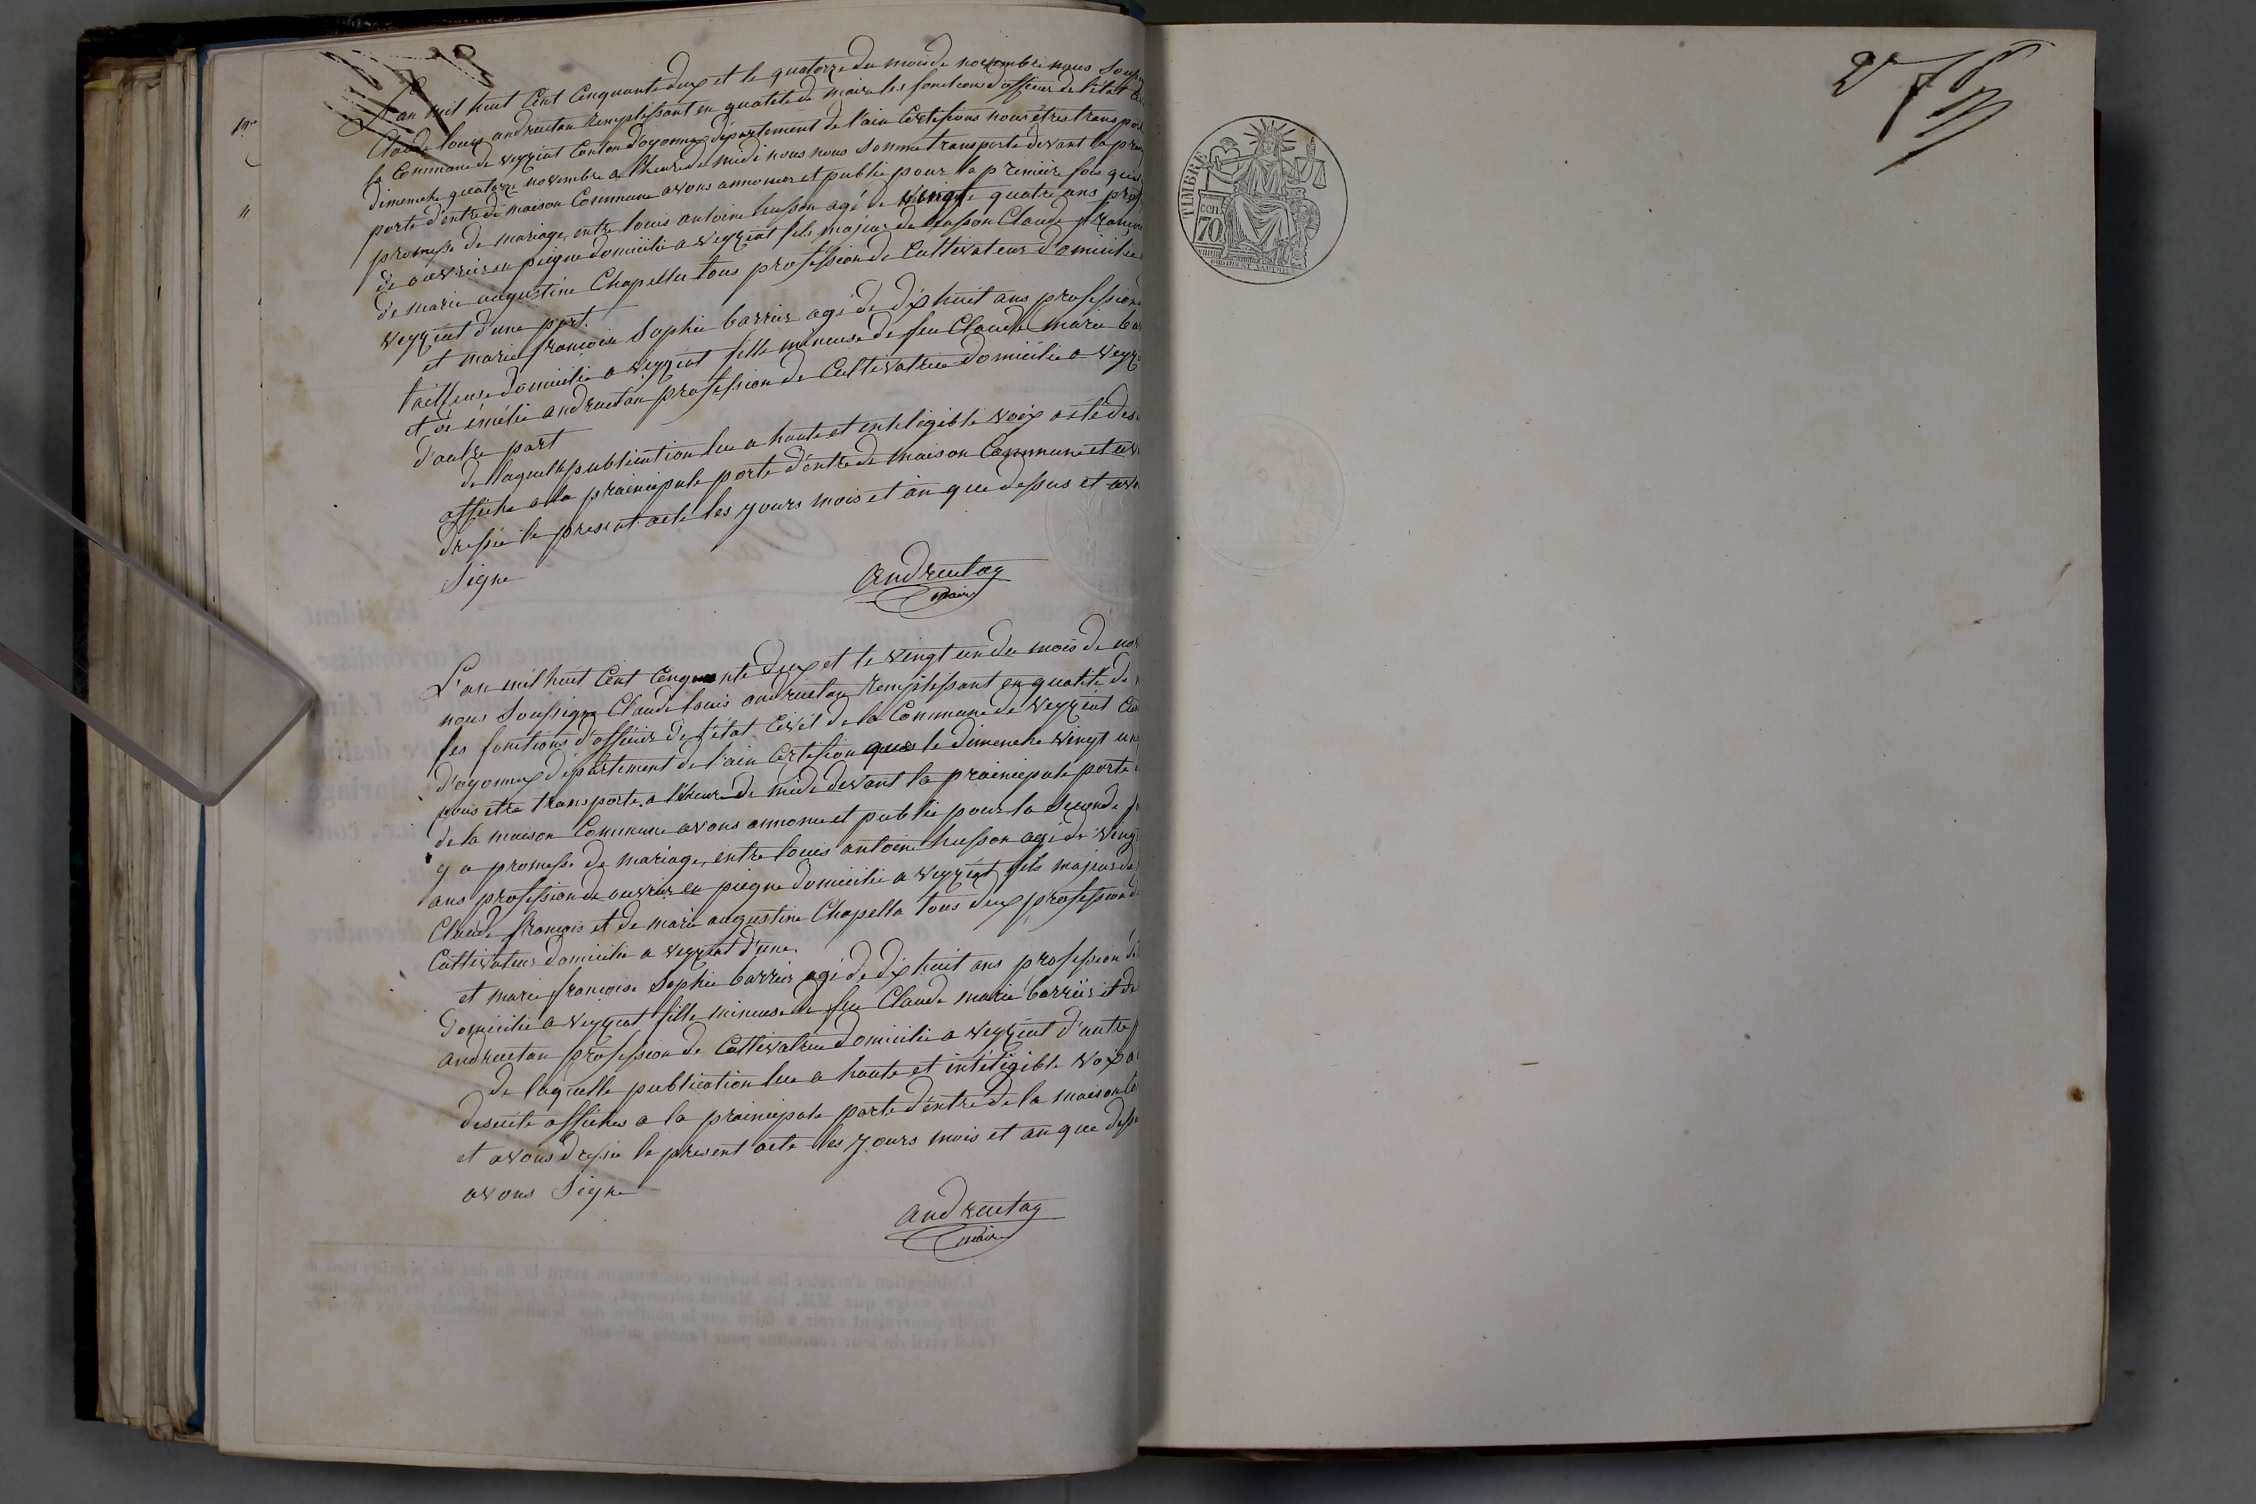 L'an mil huit Cent Cenquante deux et le quatorze du mois de novembre nous Sous
Claude louis andruetan Remplissant en qualité de maire les fonctions d'officier de l'état
la Commune de veyziat Canton d'oyonnax département de l'ain Certifions nous être transpor
dimenche quatorze novembre a l'heure de midi nous nous Somme transporte devant la prin
porte d'entre de maison Commune avons annoncer et publie pour la premiere fois que
promesse de mariage entre louis antoine husson agé de vingt quatre ans prof
de ouvrier en piegne domicilié a veyziat fils majeur de husson Claude françois
de marie augustine Chapella tous profession de Cultivateur domicilié
veyziat d'une part.
et marie françoise Sophie barrier agé de dix huit ans profession
tailleuse domicilié a veyziat fille mineuse de feu Claude marie ba
et de émélie andruetan profession de Cultivatrice domicilié a veyz
d'autre part
de laquelle publication lue a haute et inteligible voix a été des
affiche a la praincipale porte d'entre de maison Commune et av
dressée le present acte les jours mois et an que dessus et avo
Signe
Andruetan
maire
L'an mil huit Cent Cenquante deux et le vingt un du mois de nov
nous Soussigne Claude louis andruetan Remplissant en qualité de
les fonctions d'officier de l'état Civil de la Commune de veyziat Ca
d'oyonnax département de l'ain Certifion que le dimenche vingt un
nous etre transporte a l'heure de midi devant la praincipale porte
de la maison Commune avons annonce et publie pour la Seconde f
y a promesse de mariage entre louis antoine husson agé de ving
ans profession de ouvrier en piegne domicilié a veyziat fils majeur de
Claude françois et de marie augustine Chapella tous deux profession d
Cultivateur domicilié a veyziat d'une
et marie françoise Sophie barrier agé de dix huit ans profession de
domicilié a veyziat fille mineuse de feu Claude marie barrier et de
andruetan profession de Cultivatrice domicilié a veyziat d'autre p
de laquelle publication lue a haute et inteligible voix a
desuite affiches a la praincipale porte d'entre de la maison Co
et avons dressée le present acte les jours mois et an que dessu
avons Signe
Andruetan
maire
TIMBRE
cen.
70